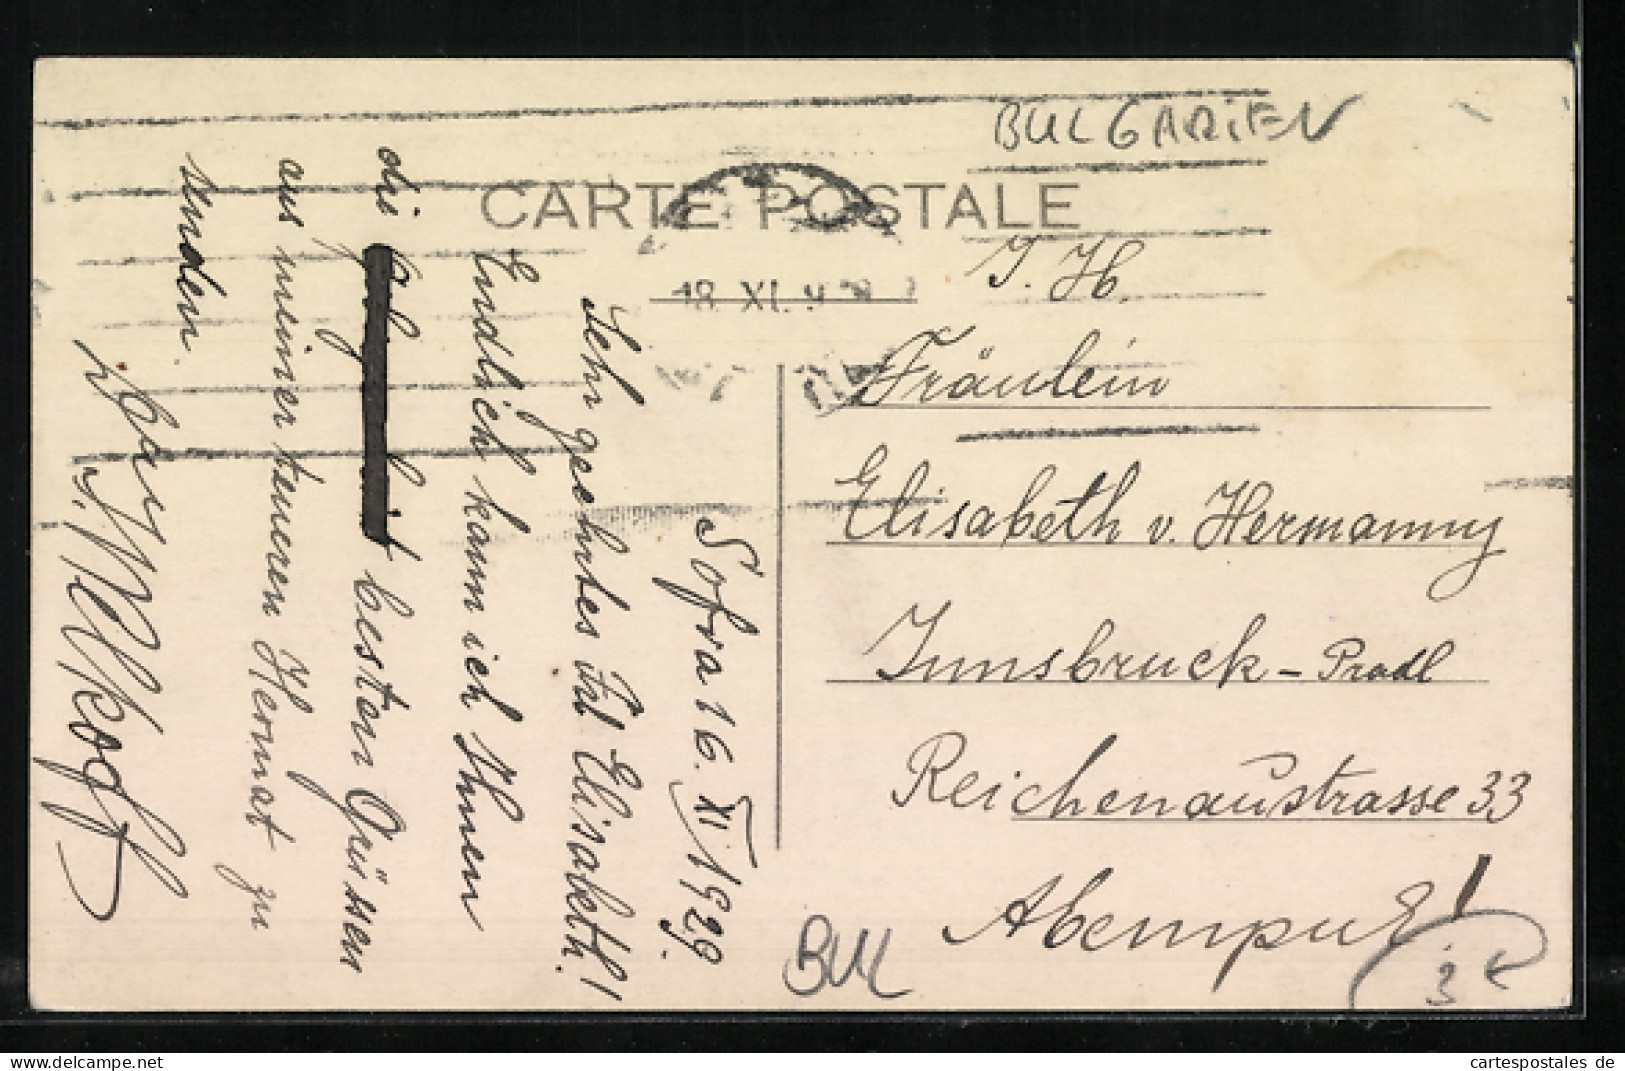 BULGARIEN
CARTE POSTALE
18 XI.
Sofia 16. XI 1929.
Sehr geehrtes Frl Elisabeth!
Endlich kann ich Ihnen
die besten Grüssen
aus meiner teueren Heimat zu
senden.
Fräulein
Elisabeth v. Hermanny
Innsbruck - Pradl
Reichenaustrasse 33
BUL
3 €
cartespostales de